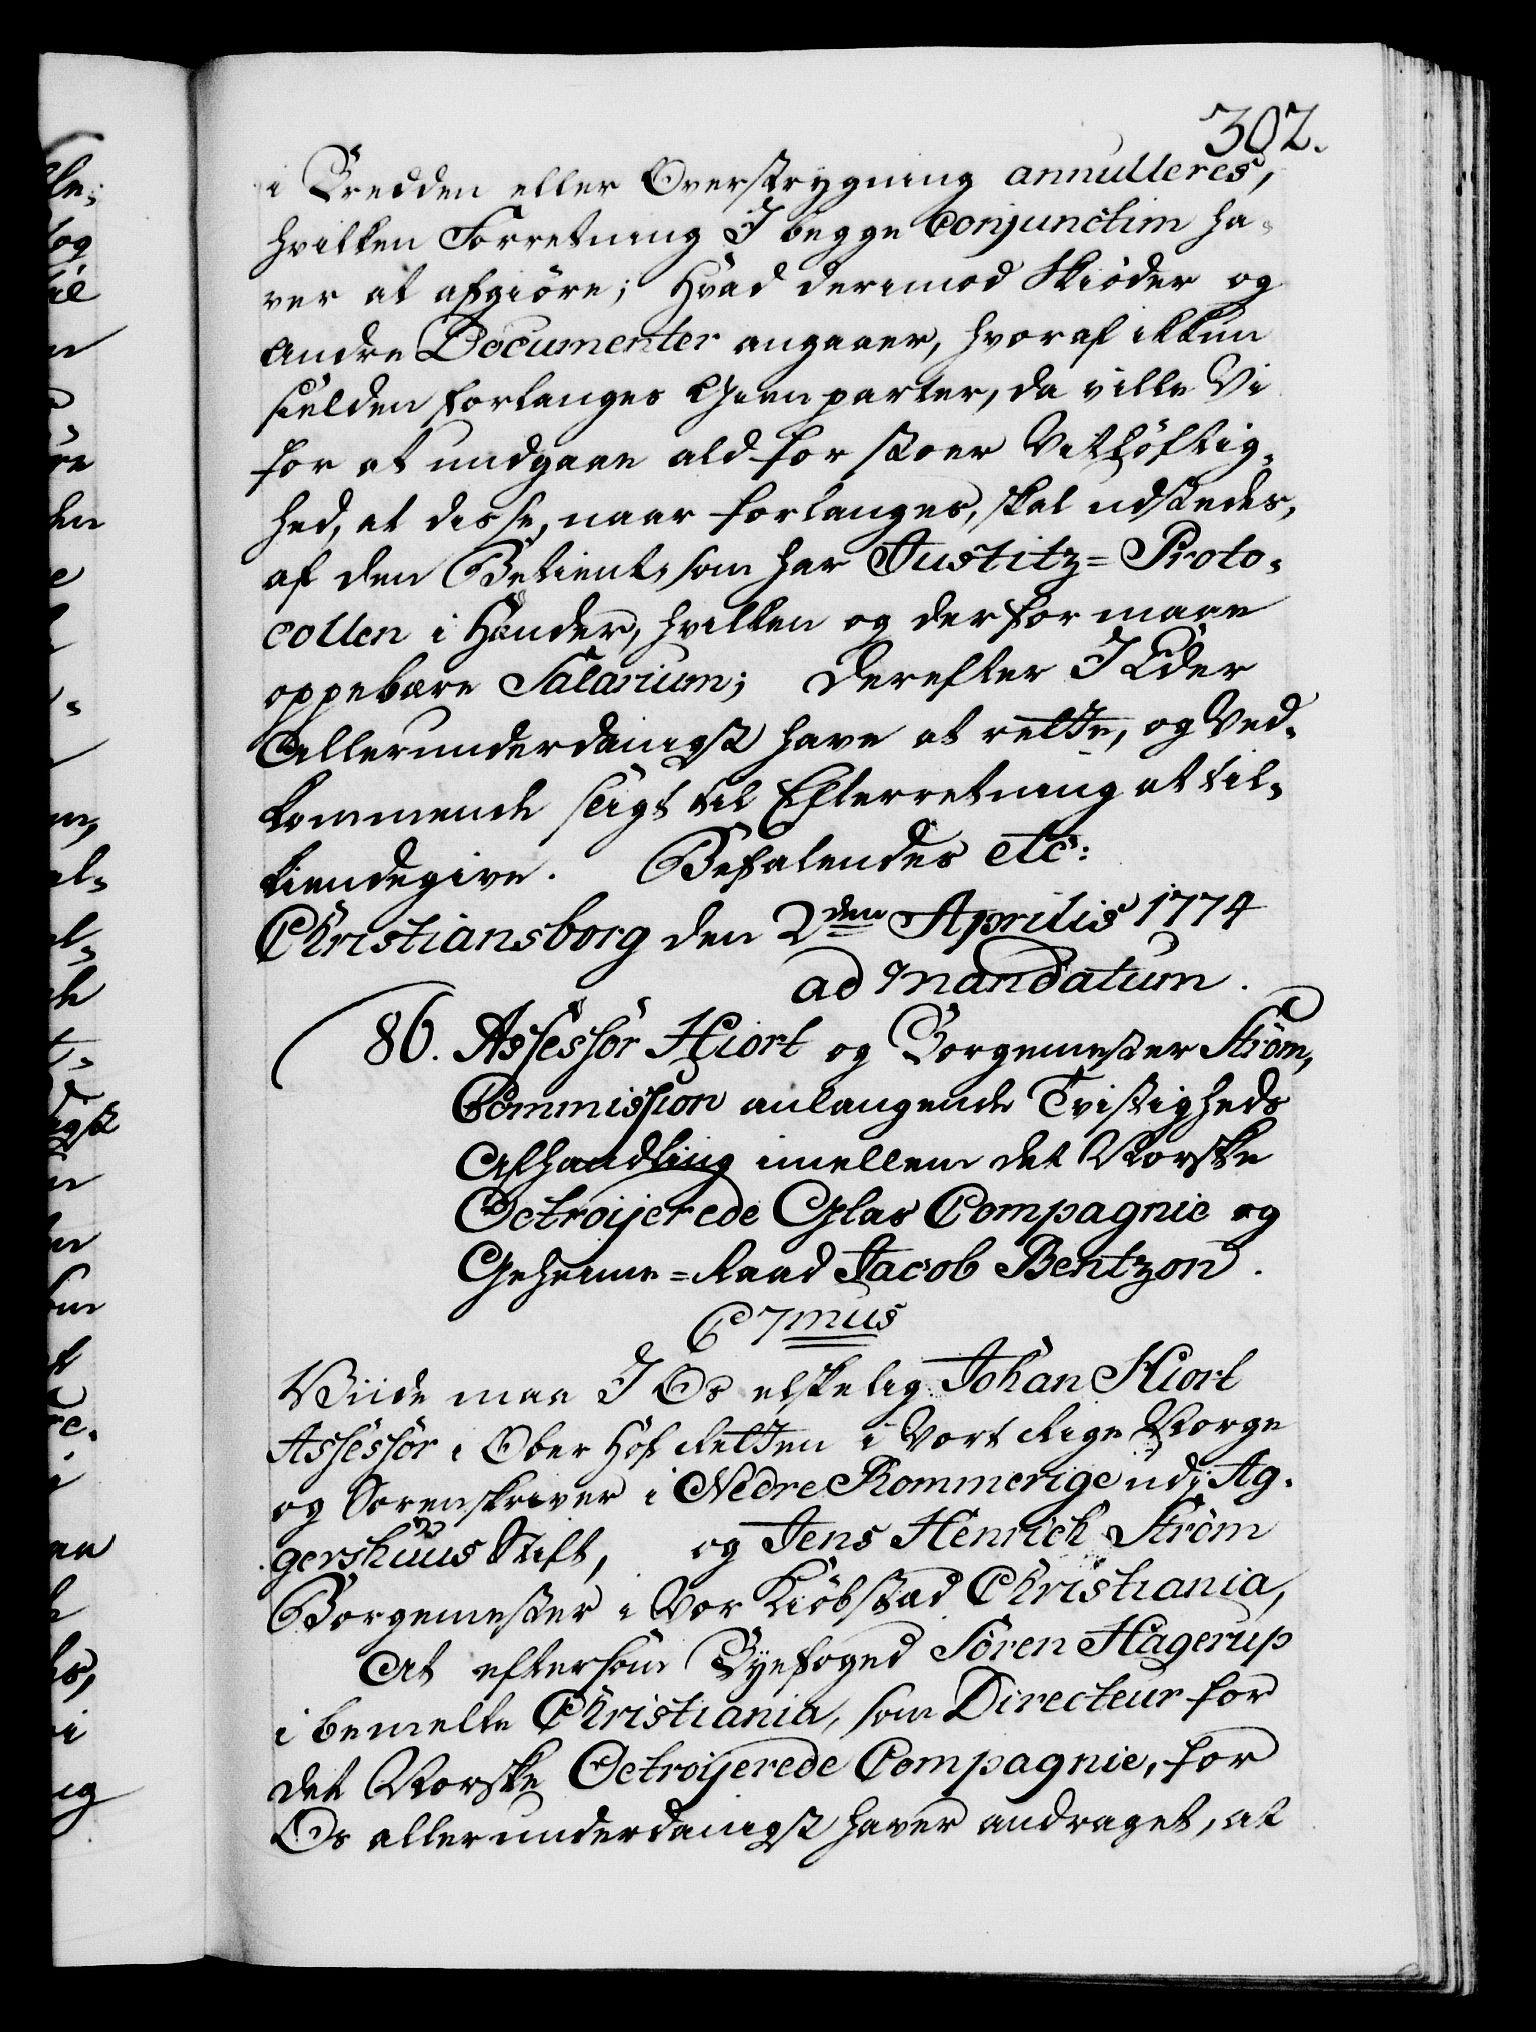 302.
i Bredden eller Overstrygning annulleres,
hvilken Forretning I begge Conjunctim ha-
ver at afgiöre; Hvad derimod Skiöder og
andre Documenter angaaer, hvoraf ikkun
sielden forlanges Gienparter, da ville Vi
for at undgaae ald for stoer Vitlöftig-
hed, at disse, naar forlanges, skal udstedes,
af den Betient, som har Justitz=Proto-
collen i Hænder, hvilken og derfor maae
oppebære Salarium; Derefter I Eder
allerunderdanigst have at rette, og Ved-
kommende sligt til Efterretning at til-
kiendegive. Befalendes etc:
Christiansborg den 2den Aprilis 1774
ad Mandatum.
86. Assessor Hiort og Borgemester Ström,
Commission anlangende Tvistigheds
Afhandling imellem det Norske
Octroijerede Glas Compagnie og
Geheime=Raad Jacob Bentzon.
C 7mus
Viide maa I Os elskelig Johan Hiort
Assessor i Ober Hof Retten i Vort Rige Norge
og Sorenskriver i Nedre Rommerige udi Ag-
gershuus Stift, og Jens Henrich Ström
Borgemester i Vor Kiöbstad Christiania,
At eftersom Byefoged Sören Hagerup
i bemelte Christiania, som Directeur for
det Norske Octroijerede Compagnie, for
Os allerunderdanigst haver andraget, at